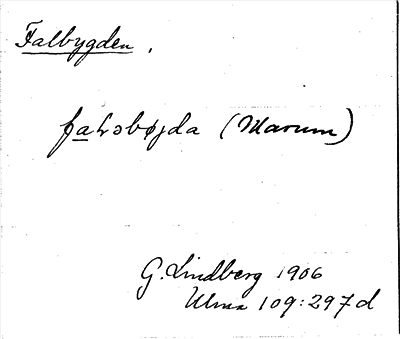 Falbygden.
falsbøjda (Marum)
G. Lindberg 1906
Ulma 109:297 d